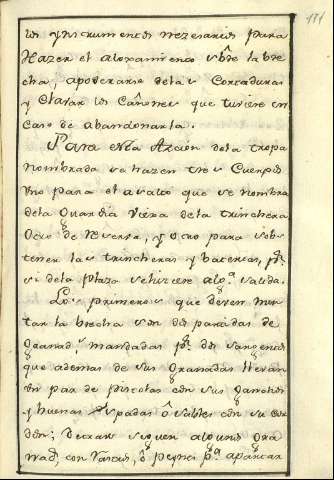 181
los ynstrumentos nezesarios para
Hazer el aloxamiento sbre la bre
cha, apoderarse delas Cortaduras
y Clavar los Cañones que tuviere en
caso de abandonarla.
Para esta Azcion dela tropa
Nombrada se hazen tres Cuerpos
Vno para el asalto que se nombra
dela Guardia Viexa dela trinchera
Otro de Reserva, y otro para sobs
tener las trincheras y baterias, pr.
si dela Plaza se hiziere algª salida.
Los primeros que deven mon
tar la brecha son dos paradas de
Granads mandadas pr. dos sargentos
que ademas de sus Granadas llevan
Vn par de pistolas con sus ganchos
y buenas espadas ô sables con su cor
don; detras siguen algunos Gra
nads con Varas, ô peynes pª apartar